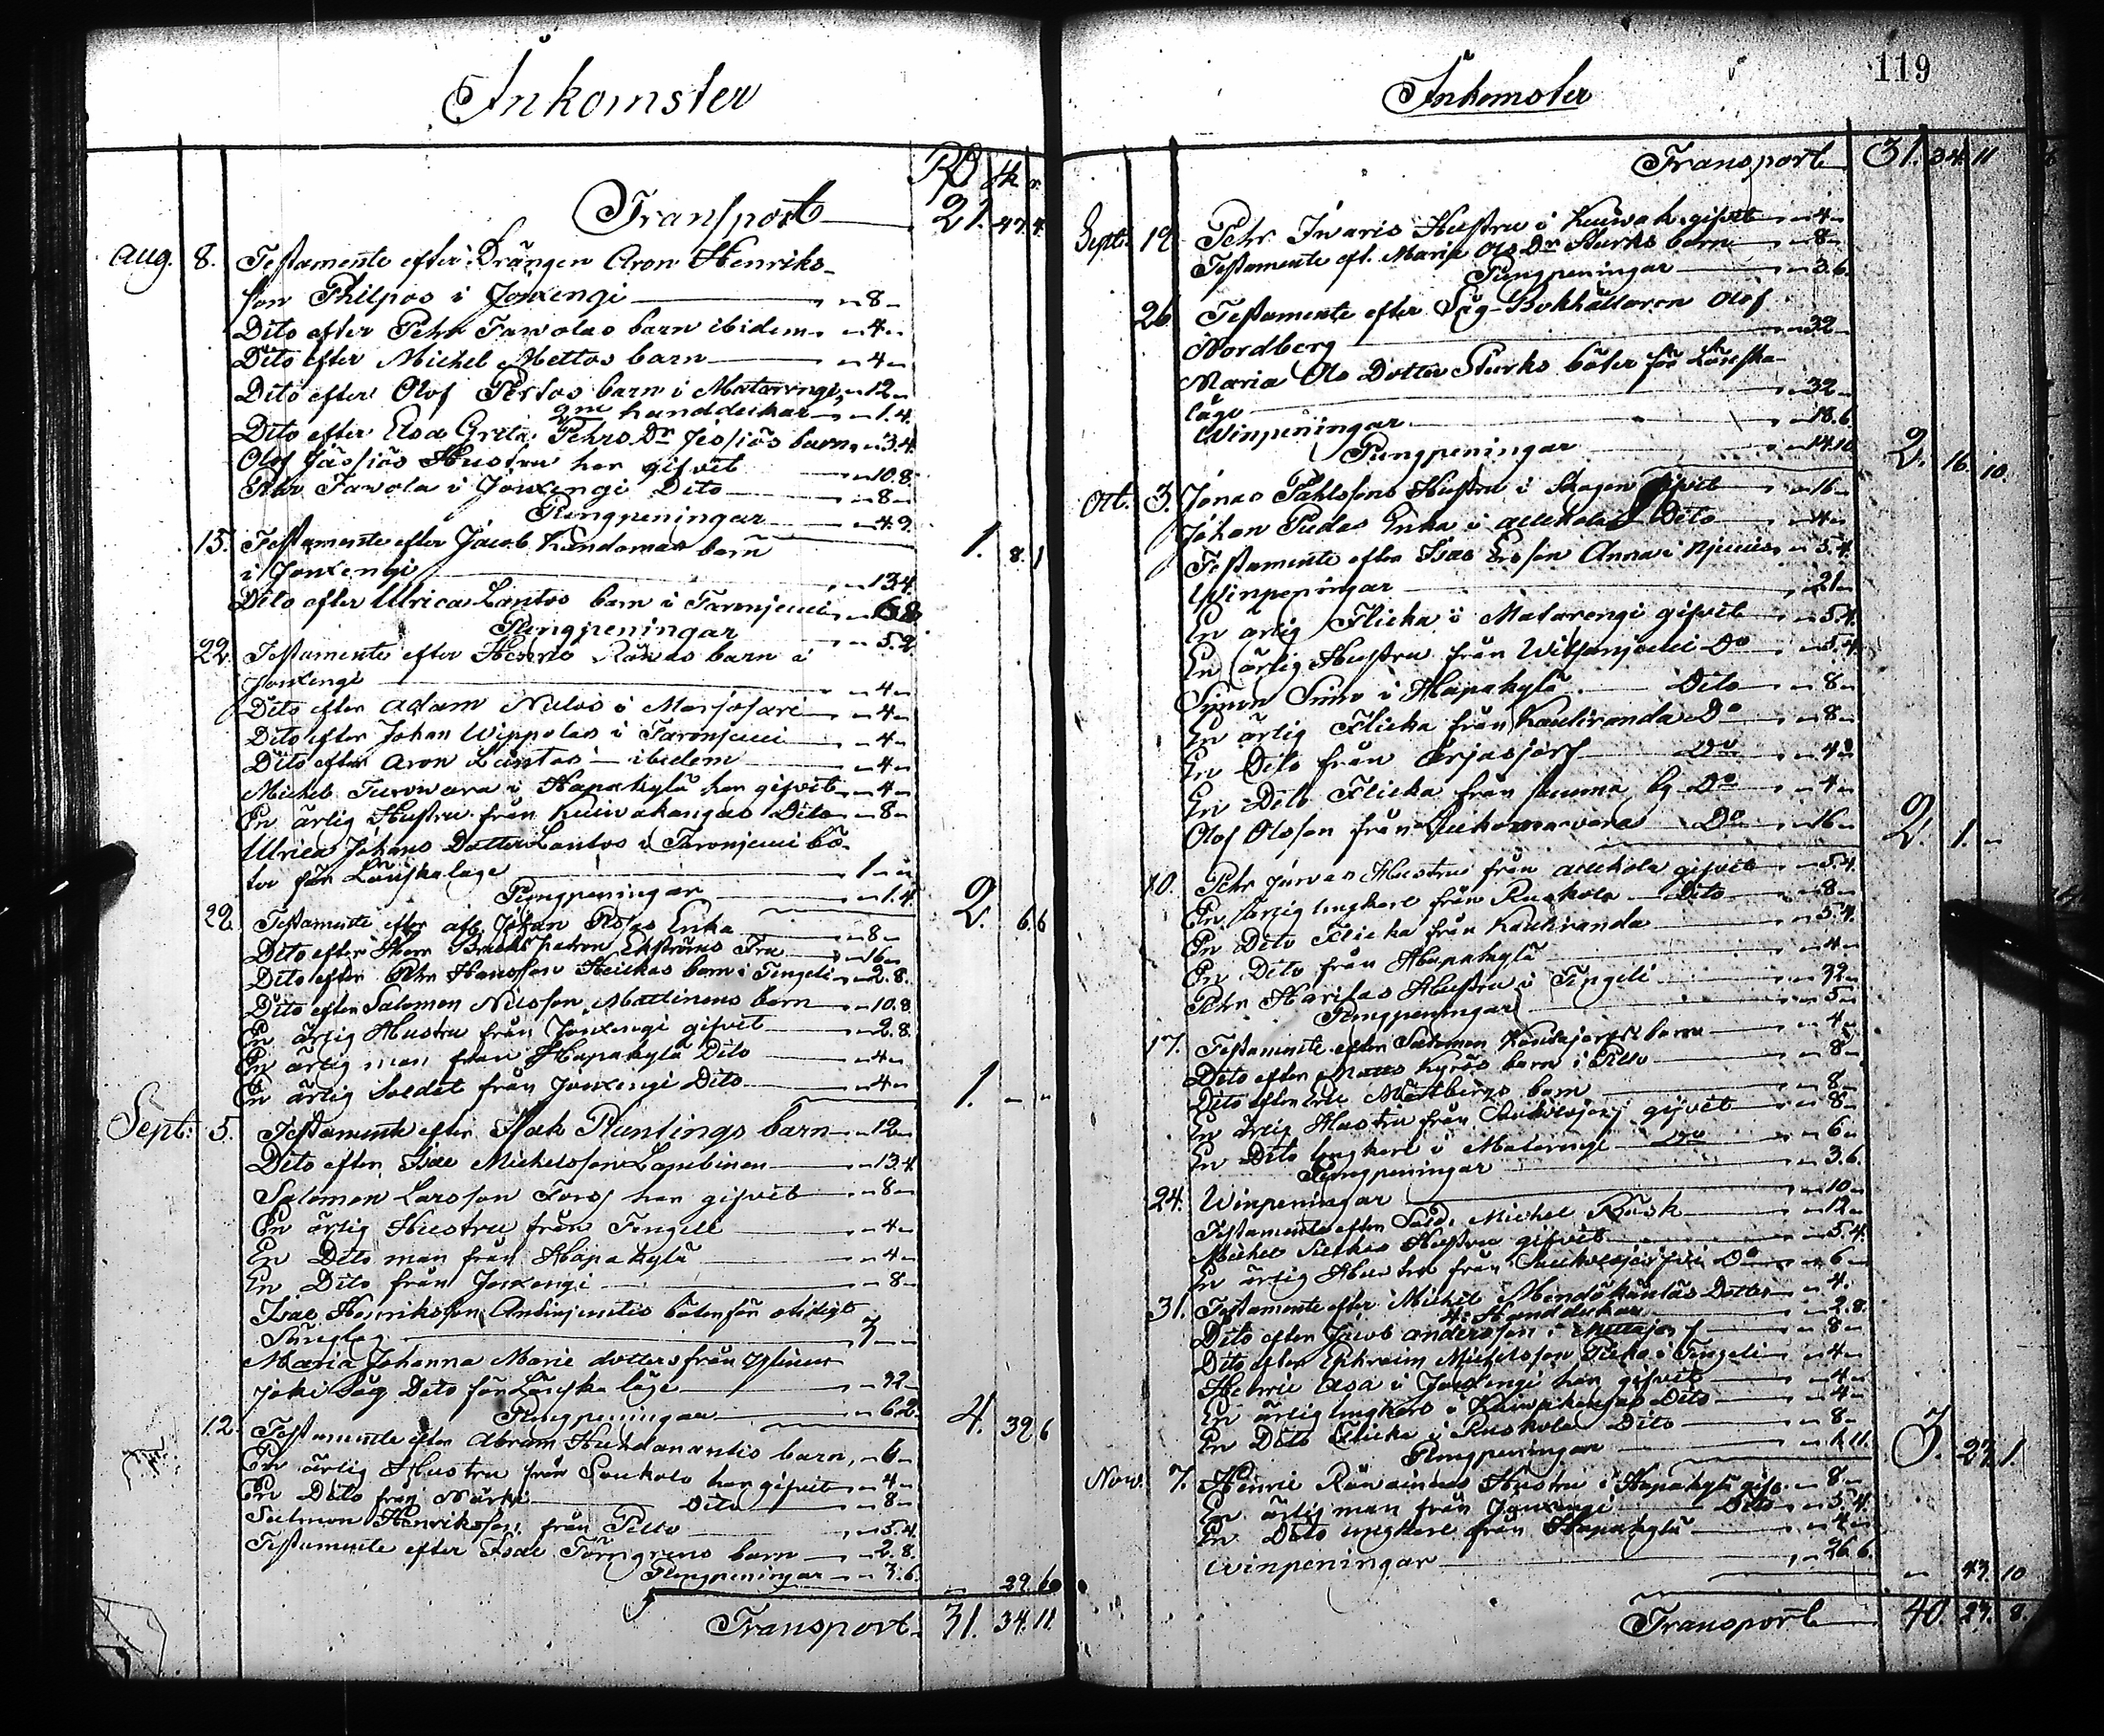 Inkomster
Rd sk r.
Transport 21. 47. 4.
Aug. 8. Testamente efter Drängen Aron Henriks-
son Philpas i Jouxengi - 8 -
Dito efter Pehr Tawolas barn ibidem - 4 -
Dito efter Michel Mettos barn - 4 -
Dito efter Olof Pertos barn i Matarengi - 12 -
2ne handdukar - 1.4.
Dito efter Elsa Greta Pehrs Dr Jässiös barn - 3.4.
Olof Jässiös Hustru har gifvit - 10.8.
Pehr Tavola i Jouxengi Dito - 8 -
Pungpeningar - 4.9. 1. 8. 1
15. Testamente efter Jacob Kundomas barn
i Jouxengi - 13.4.
Dito efter Ulrica Lantos barn i Taronjemi - 6.8
Pungpeningar - 5.2.
22. Testamente efter Henric barn i
Jouxengi - 4 -
Dito efter Adam Nulus i Marjosari - 4 -
Dito efter Johan Wippolas i Taronjemi - 4 -
Dito efter Aron Lantos ibidem - 4 -
Michel Turowara i Hapakylä har gifvit - 4 -
En ärlig Hustru från Kuiwakangas Dito - 8 -
Ulrica Johans Dotter Lantos i Taronjemi bö-
ter för Lönskaläge 1 - -
Pungpeningar - 1.4. 2. 6. 6
29. Testamente efter afl. Johan Enka - 8 -
Dito efter Herr Bruks Patron Ekströms Fru - 16 -
Dito efter Pehr Hansson Heickas barn i Tengeli - 2.8.
Dito efter Salomon Nilsson Mattinens barn - 10.8
En ärlig Hustru från Jouxengi gifvit - 2.8.
En ärlig man från Hapakylä Dito - 4 -
En ärlig Soldat från Jouxengi Dito - 4 - 1. - -
Sept: 5. Testamente efter Isak Runtings barn - 12 -
Dito efter Isac Michelsson Lampinen - 13.4
Salomon Larsson Fors har gifvit - 8 -
En ärlig Hustru från Tengeli - 4 -
En Dito man från Hapakylä - 4 -
En Dito från Jouxengi - 8 -
Isac Henriksson böter för otidigt
3 - -
Maria Johanna Marie dotters från
joki Såg Dito för Lönskaläge - 32 -
Pungpeningar - 6.2. 4. 32 6
12. Testamente efter Abram barn - 6 -
En ärlig Hustru från har gifvit - 4 -
En Dito från Närki Dito - 8 -
Salmon Henriksson från Pello - 5.4.
Testamente efter Isac Törngrens barn - 2.8.
Pungpeningar - 3.6. - 29. 6
Transport 31. 34. 11.

119
Inkomster
Transport 31. 34. 11
Sept: 19. Pehr Iwaris Hustru i gifvit - 4 -
Testamente eft. Maria Ols Dr Sturks barn - 8 -
Pungpeningar - 3.6.
26. Testamente efter Såg-Bokhållaren Olof
Nordberg - 32 -
Maria Ols Dotter Sturks böter för Lönska-
läge - 32 -
Winpeningar - 18.6.
Pungpeningar - 14.10 2. 16. 10.
Oct. 3. Jonas Pahlssons Hustru i Skogen gifvit - 16 -
Johan Pudas Enka i Alkula Dito - 4 -
Testamente efter Isac Ersson Anna i - 5.4.
Winpeningar - 21 -
En ärlig Flicka i Matarengi gifvit - 5.4.
En ärlig Hustru från Do - 5.4.
Simon Simo i Hapakylä Dito - 8 -
En ärlig Flicka från Kauliranda Do - 8 -
En Dito från Örjasjärf Do - 4 -
En Dito Flicka från samma by Do - 4 -
Olof Olsson från Do - 16 - 2. 1. -
10. Pehr Hustru från Alkula gifvit - 5.4.
En ärlig ungkarl från Ruskola Dito - 8 -
En Dito Flicka från Kauliranda - 5.4.
En Dito från Hapakylä - 4 -
Pehr Hustru i Tengeli - 32 -
Pungpeningar - 5 -
17. Testamente efter Salomon barn - 4 -
Dito efter Matts Kyrös barn i Pello - 8 -
Dito efter Eric Wästbergs barn - 8 -
En ärlig Hustru från gifvit - 8 -
En Dito ungkarl i Matarengi Do - 6 -
Pungpeningar - 3.6.
24. Winpeningar - 10 -
Testamente efter Sold. Michel Rask - 12 -
Michel Hustru gifvit - 5.4.
En ärlig Hustru från Do - 6 -
31. Testamente efter Michel Dotter - 4.
4: Handdukar - 2.8.
Dito efter Jacob Andersson i - 8 -
Dito efter Ephraim Michelsson i Tengeli - 4 -
Henric Asa i Jouxengi har gifvit - 4 -
En ärlig ungkarl i Kuiwakangas Dito - 4 -
En Dito Flicka i Ruskola Dito - 8 -
Pungpeningar - 1.11. 3. 23. 1.
Nov. 7. Henric Hustru i Hapakylä gifv. - 8 -
En ärlig man från Jouxengi Dito - 5.4.
En Dito ungkarl från Hapakylä - 4 -
Winpeningar - 26.6. - 43. 10
Transport 40. 23. 8.